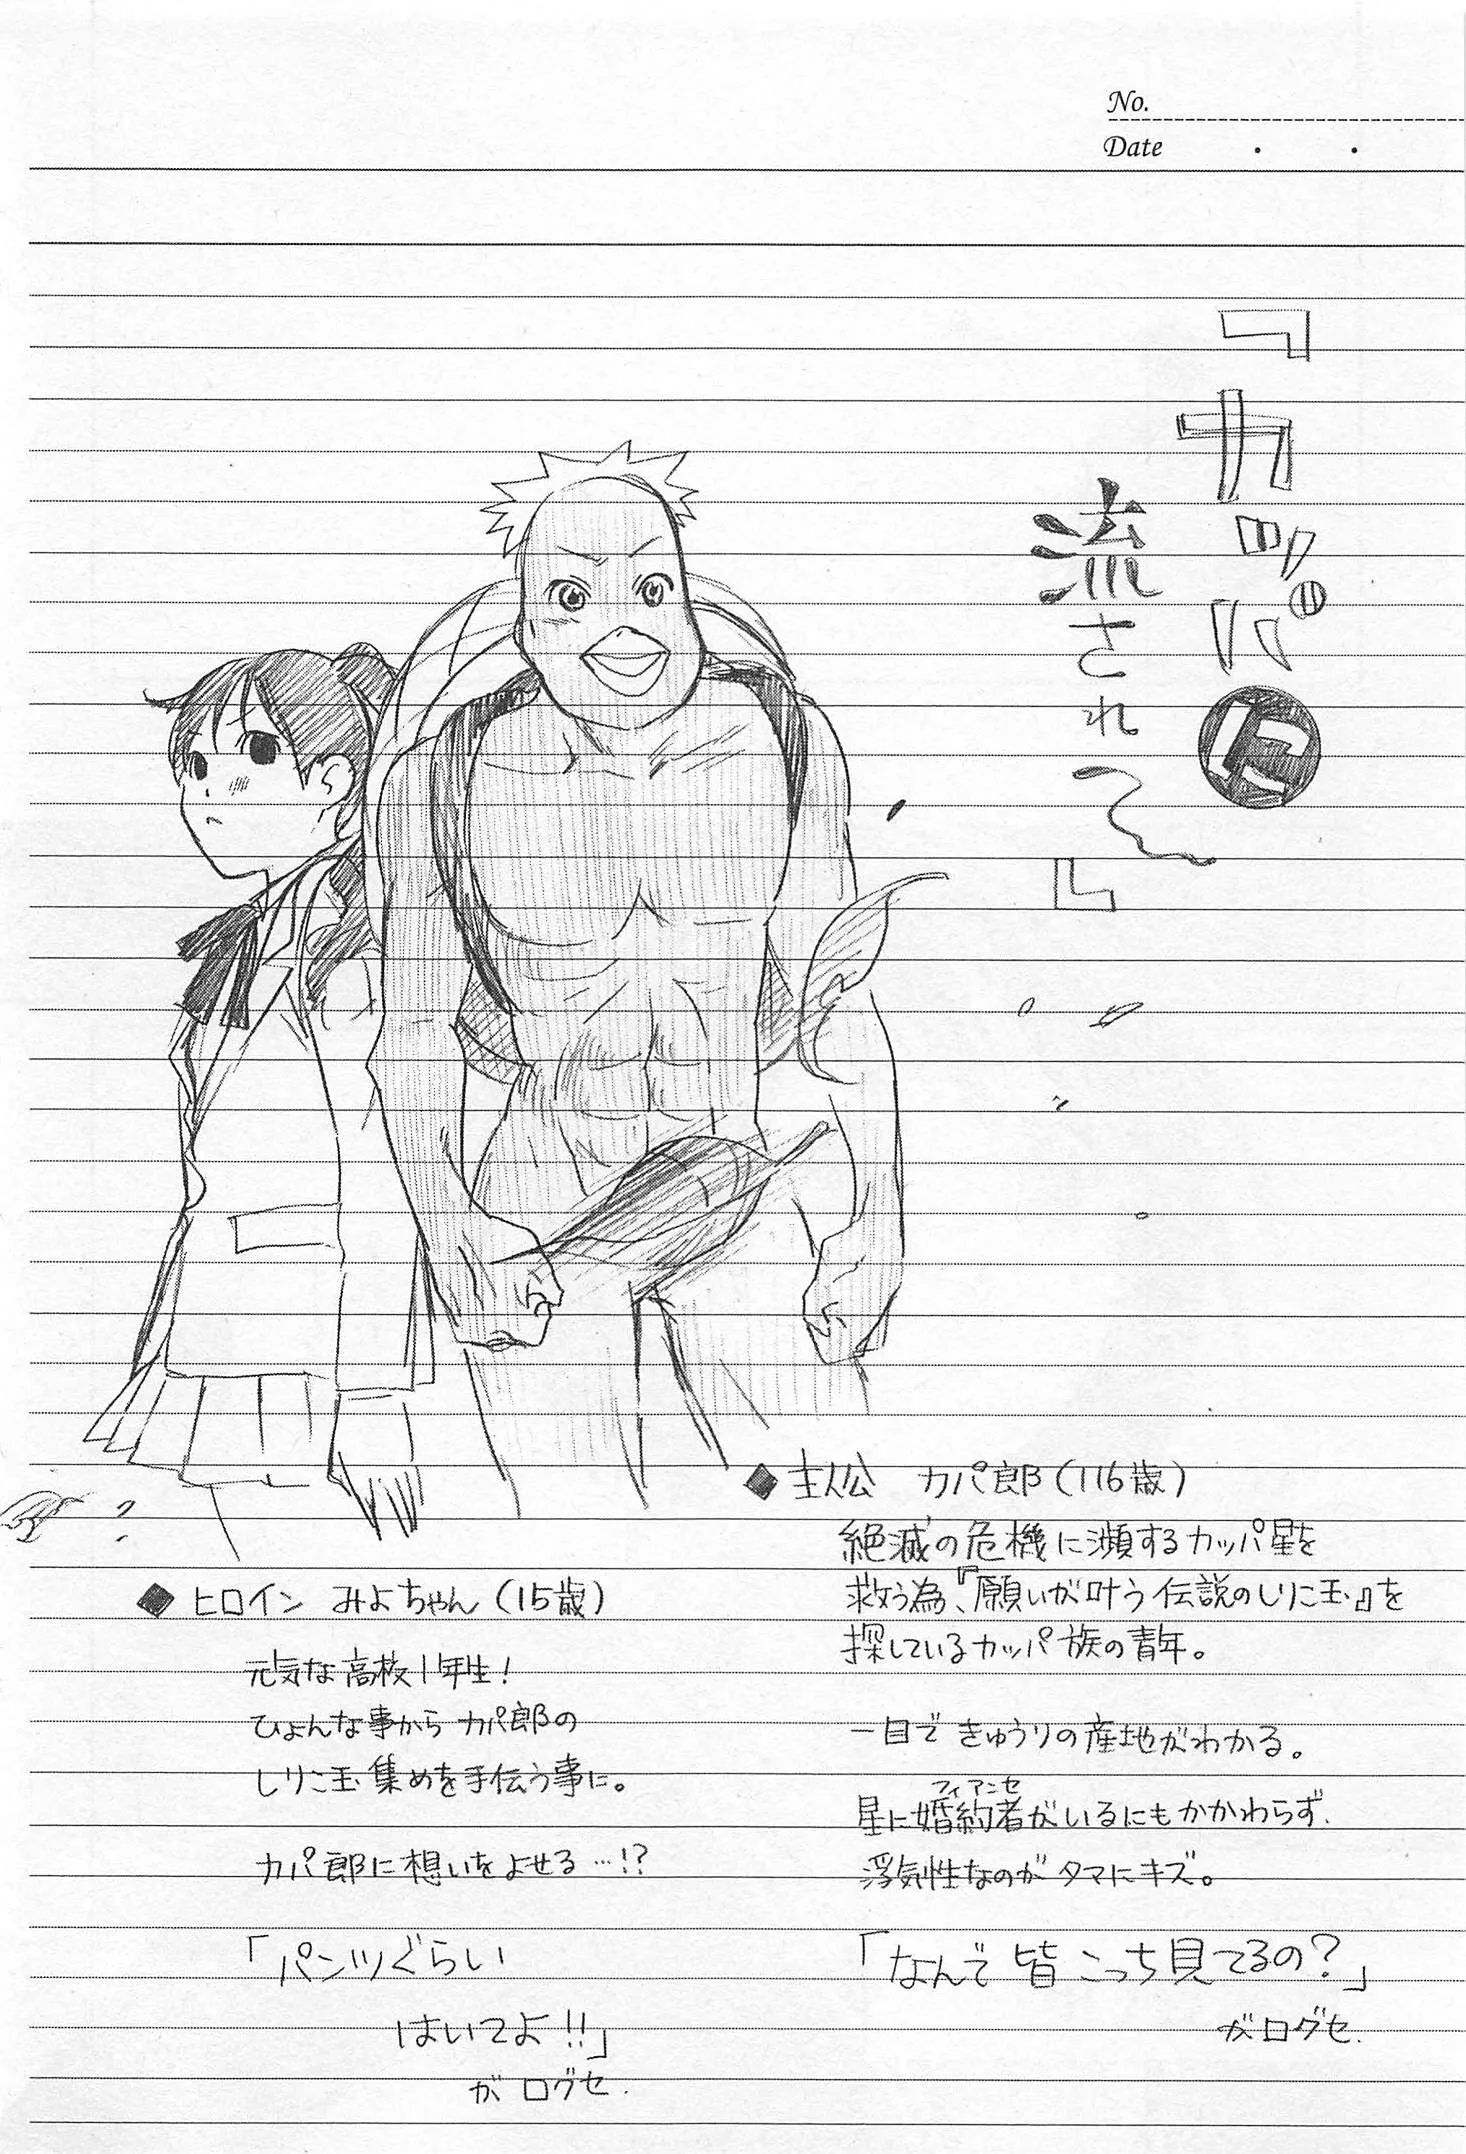 No.
Date
『カッパに
流されて』
◆主人公 カパ郎(116歳)
絶滅の危機に瀕するカッパ星を
救う為、『願いが叶う伝説のしりこ玉』を
探しているカッパ族の青年。
一目できゅうりの産地がわかる。
フィアンセ
星に婚約者がいるにもかかわらず、
浮気性なのがタマにキズ。
「なんで皆こっち見てるの?」
が口グセ.
◆ヒロイン みよちゃん(15歳)
元気な高校1年生!
ひょんな事からカパ郎の
しりこ玉集めを手伝う事に。
カパ郎に想いをよせる…!?
「パンツぐらい
はいてよ!!」
が口グセ.